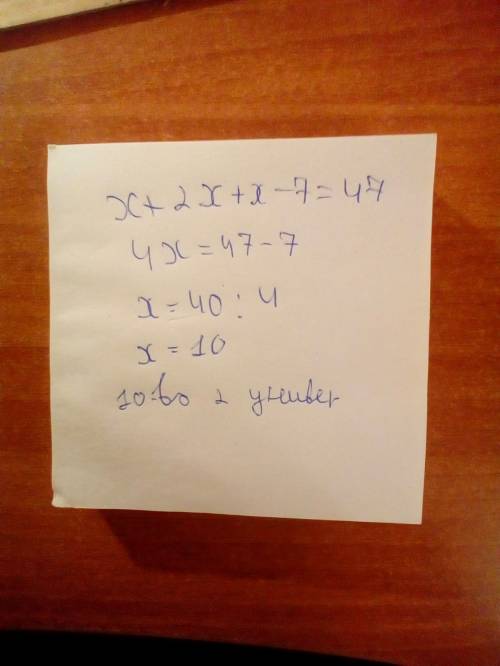 x+2x+x-7=47
4x=47-7
x=40:4
x=10
10-во 2 универ